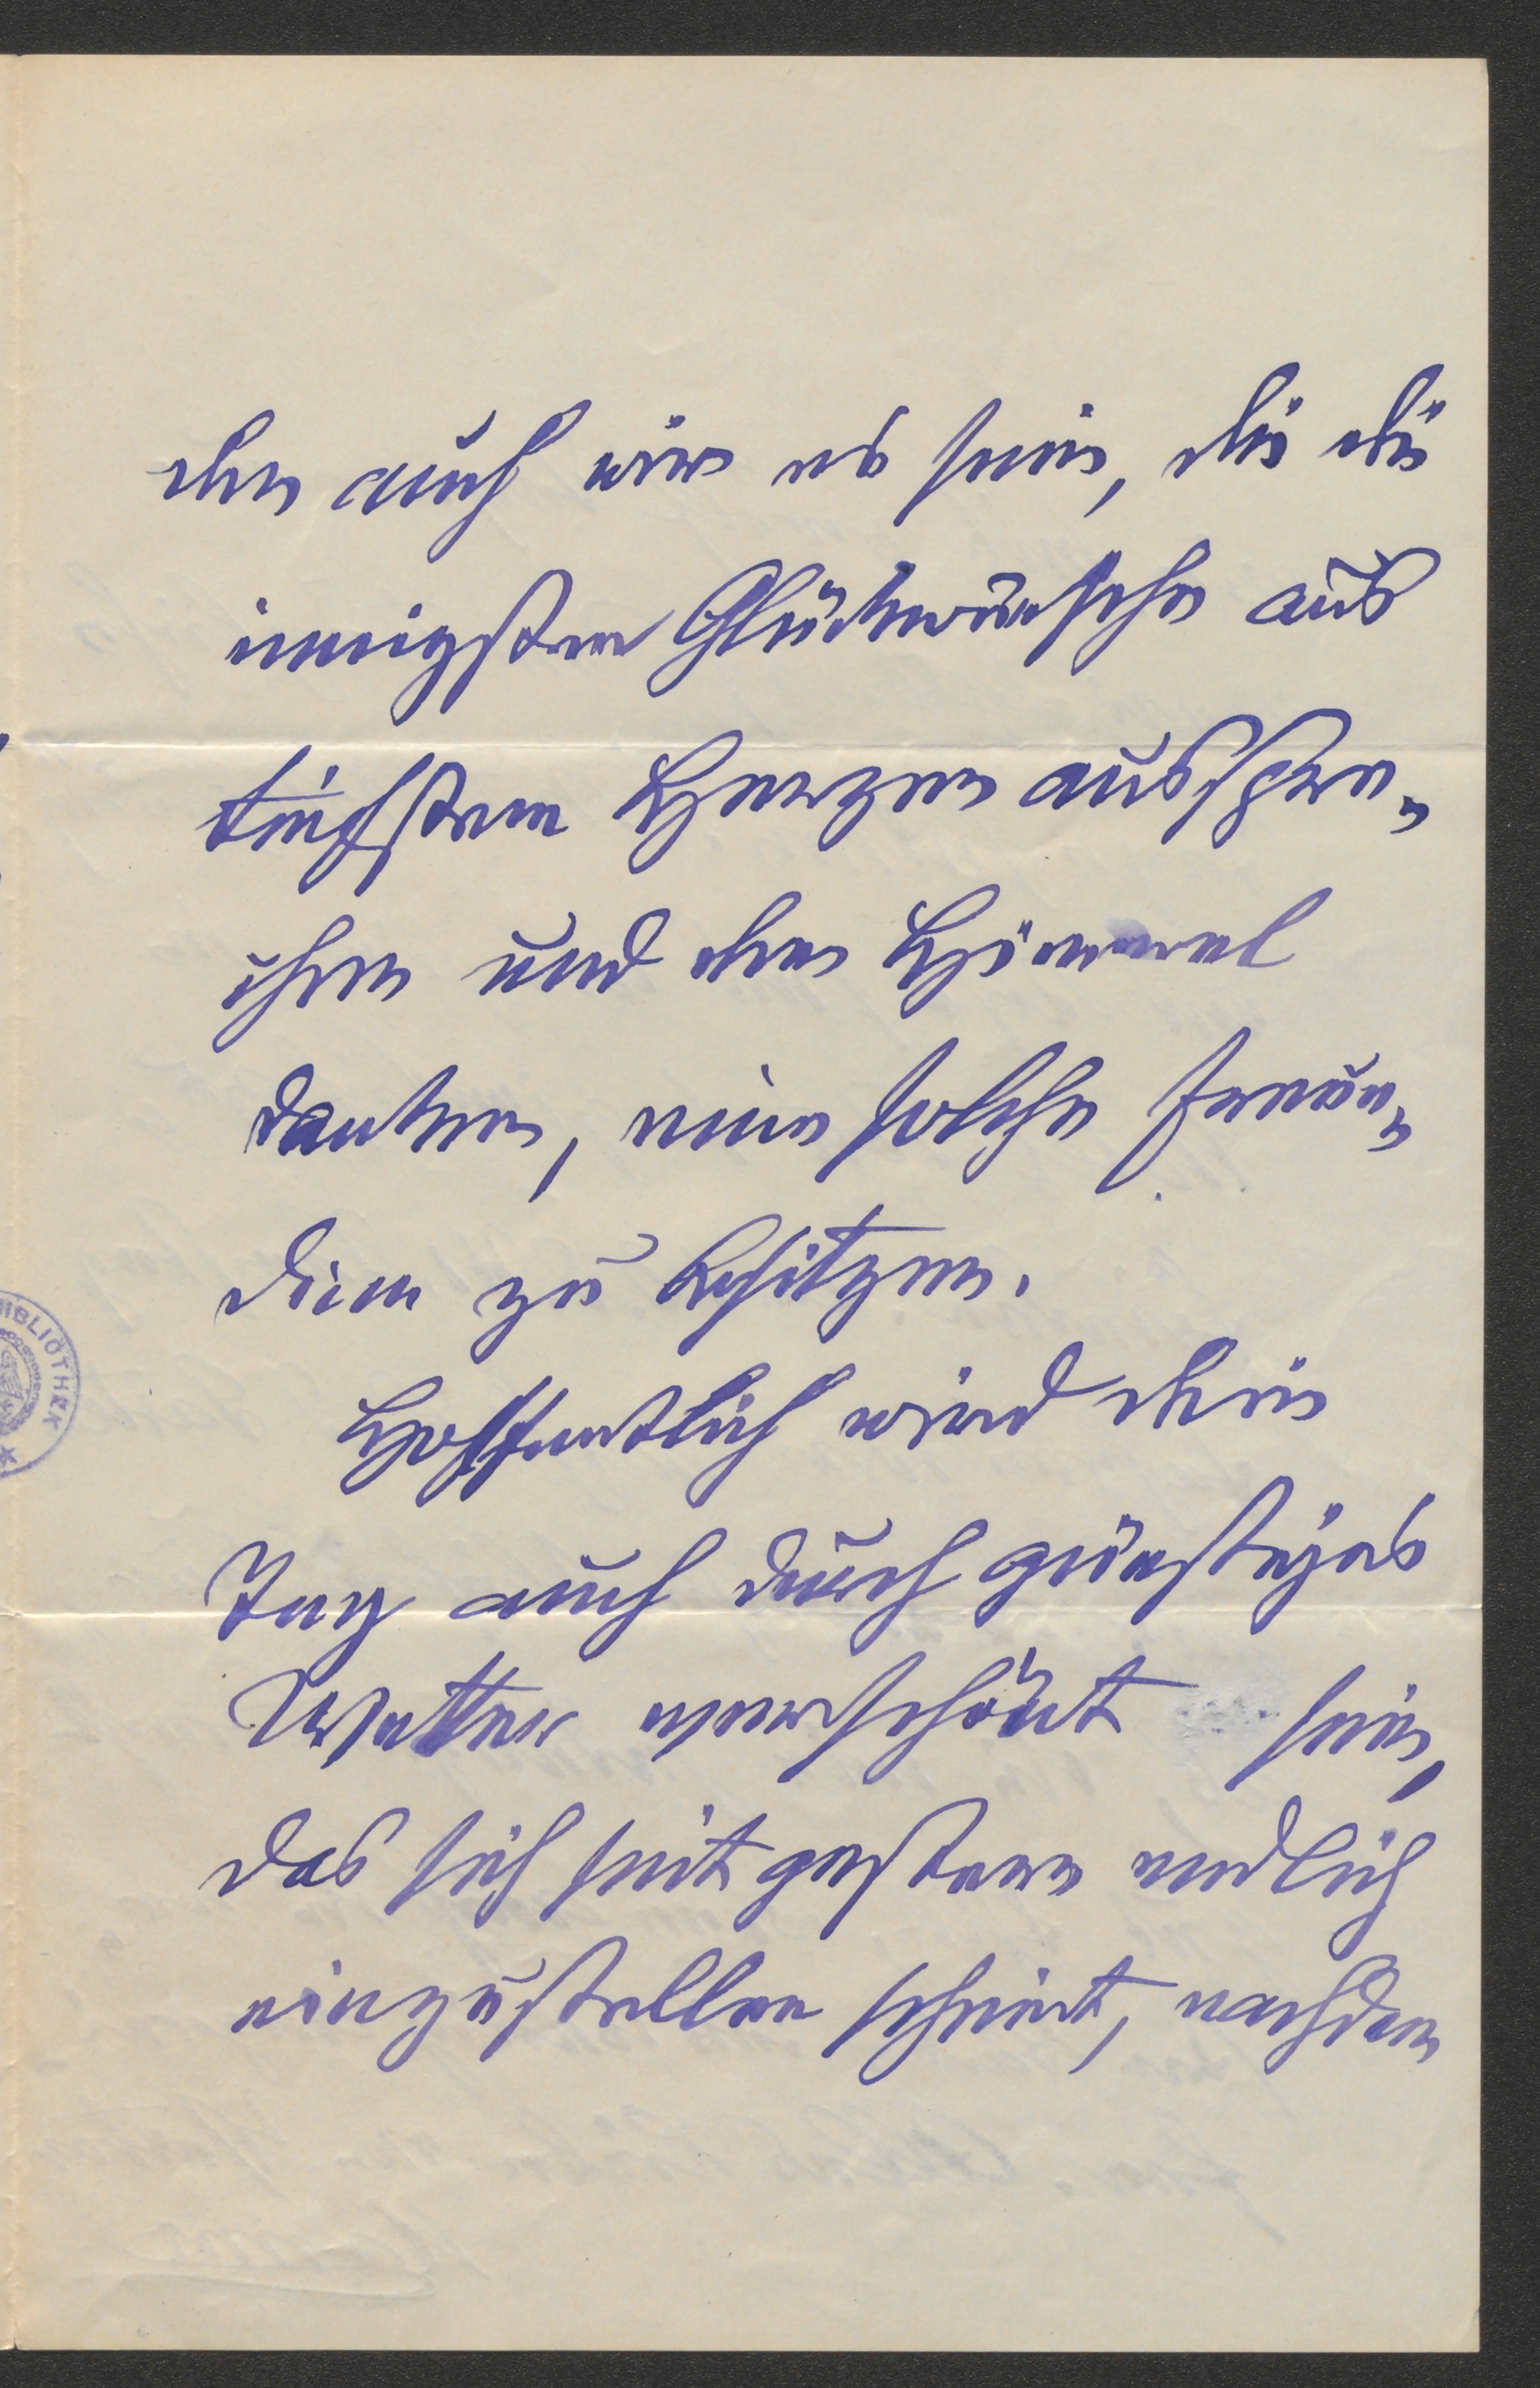 den auch wir es sein, die die
innigsten Glückwünsche aus
tiefstem Herzen ausspre-
chen und dem Himmel
danken, eine solche Freun-
din zu besitzen.
Hoffentlich wird dein
Tag auch durch günstiges
Wetter verschönt sein,
das sich seit gestern endlich
einzustellen scheint, nachdem
BIBLIOTHEK